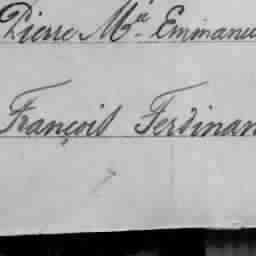 Pierre Mie Emmanu
François Ferdinan